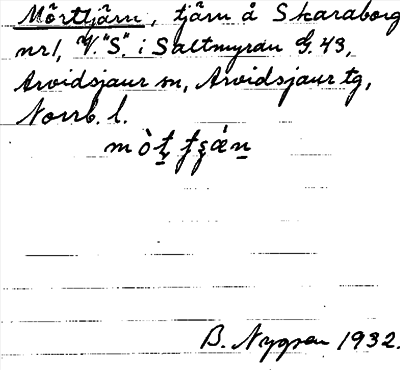 Mörttjärn, tjärn å Skaraborg
nr 1, V. "S". i Saltmyrån G. 43,
Arvidsjaur sn, Arvidsjaur tg,
Norrb. l.
B. Nygren 1932.